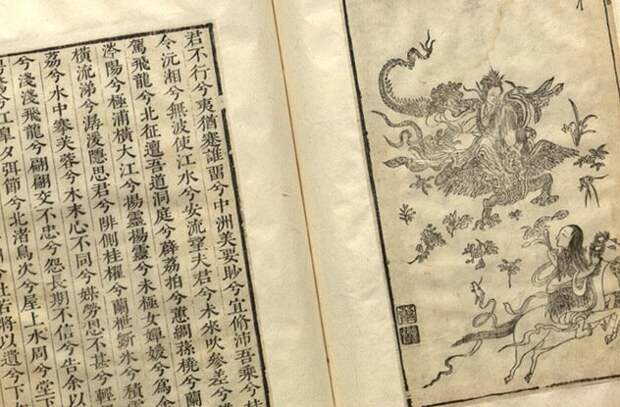 君不行兮夷猶蹇誰畱兮中洲美要眇兮宜脩沛吾乘兮桂
令沅湘兮無波使江水兮安流望夫君兮未來吹參差兮
駕飛龍兮北征邅吾道兮洞庭薜荔拍兮蕙綢蓀橈兮蘭
涔陽兮極浦橫大江兮揚靈揚靈兮未極女嬋媛兮為余
橫流涕兮潺湲隱思君兮陫側桂櫂兮蘭枻斲冰兮積雪
荔兮水中搴芙蓉兮木末心不同兮媒勞恩不甚兮輕
兮淺淺飛龍兮翩翩交不忠兮怨長期不信兮告余以
兮江皋夕弭節兮北渚鳥次兮屋上水周兮堂下
兮杜若將以遺兮下